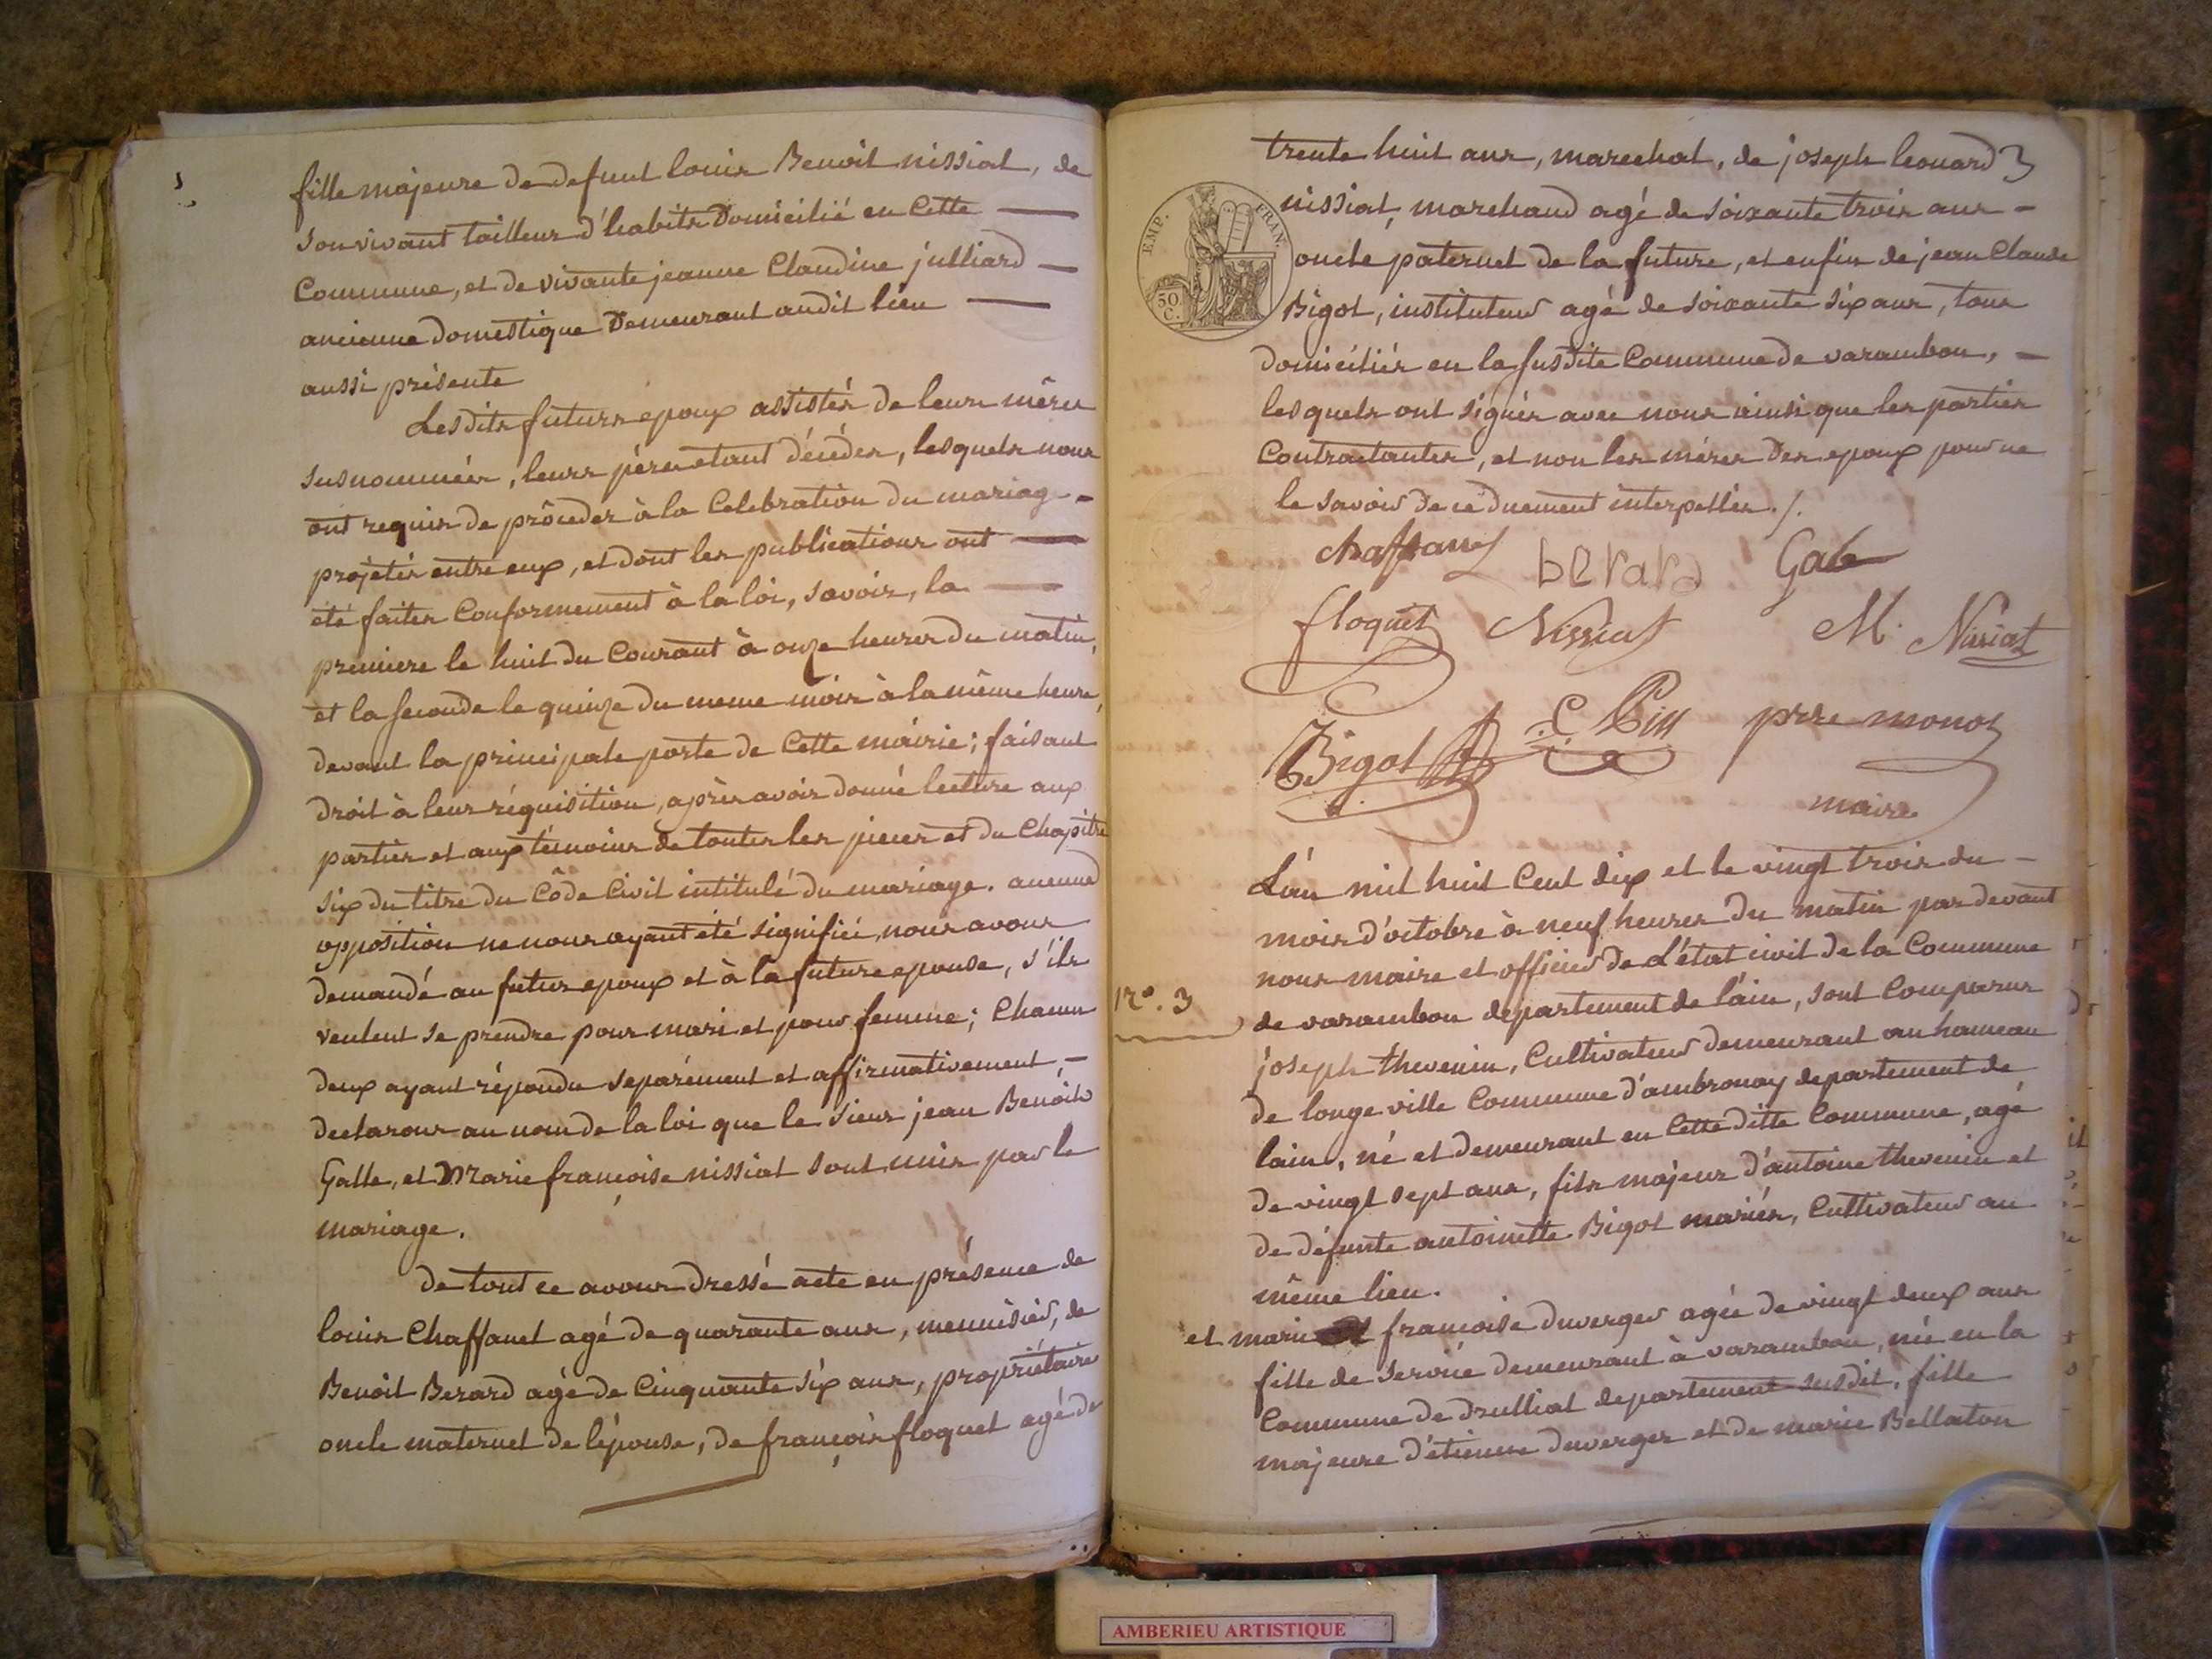 fille majeure de defunt louis Benoit nissiat, de
son vivant tailleur d'habits Domicilié en Cette
Commune, et de vivante jeanne Claudine julliard
ancienne domestique Demeurant audit lieu
aussi présente
Lesdits futurs epoux assistés de leurs méres
susnommées, leurs péres etant décédés, lesquels nous
ont requis de prôceder à la Celebration du mariag
projétés entre eux, et dont les publications ont
été faites Conformement à la loi, savoir, la
premiere le huit du Courant à onze heures du matin,
et la seconde le quinze du meme mois à la même heure,
devant la principale porte de Cette mairie; faisant
droit à leur réquisition, après avoir donné lecture aux
parties et aux témoins de toutes les pieces et du Chapitre
six du titre du Côde Civil intitulé du mariage. aucune
opposition ne nous ayant été signifiée, nous avons
demandé au futur epoux et à la future epouse, s'ils
veulent se prendre pour mari et pour femme; Chacun
deux ayant répondu separément et affirmativement,
declarons au nom de la loi que le sieur jean Benoit
Galle, et Marie françoise nissiat sont unis par le
mariage.
De tout ce avons dressé acte en présence de
louis Chaffanel agé de quarante ans, menuisier, de
Benoit Berard agé de Cinquante six ans, propriétaire
oncle maternel de lépouse, de françois floquet agé de
3
trente huit ans, marechal, de joseph leonard
nissiat, marchand agé de soixante trois ans
EMP. FRAN.
50 C.
oncle paternel de la future, et enfin de jean Claude
Bigot, instituteur agé de soixante six ans, tous
domiciliés en la susdite Commune de varambon,
lesquels ont signés avec nous ainsi que les parties
Contractantes, et non les méres des epoux pour ne
le savoir de ce duement interpellés./.
berard Gale
floquet Nissiat M. Nissiat
Bigot prre monot
maire
L'an mil huit Cent dix et le vingt trois du
mois d'octobre à neuf heures du matin pardevant
nous maire et officier de L'état civil de la Commune
N°. 3
de varambon département de l'ain, sont Comparus
joseph thevenin, Cultivateur demeurant au hameau
de longeville Commune d'ambronay departement de
lain, né et demeurant en Cette ditte Commune, agé
de vingt sept ans, fils majeur d'antoine thevenin et
de défunte antoinette Bigot mariés, Cultivateur au
même lieu.
et marie françoise duverger agée de vingt deux ans
fille de service demeurant à varambon, née en la
Commune de druillat departement susdit, fille
majeure d'étienne duverger et de marie Bellaton
AMBERIEU ARTISTIQUE